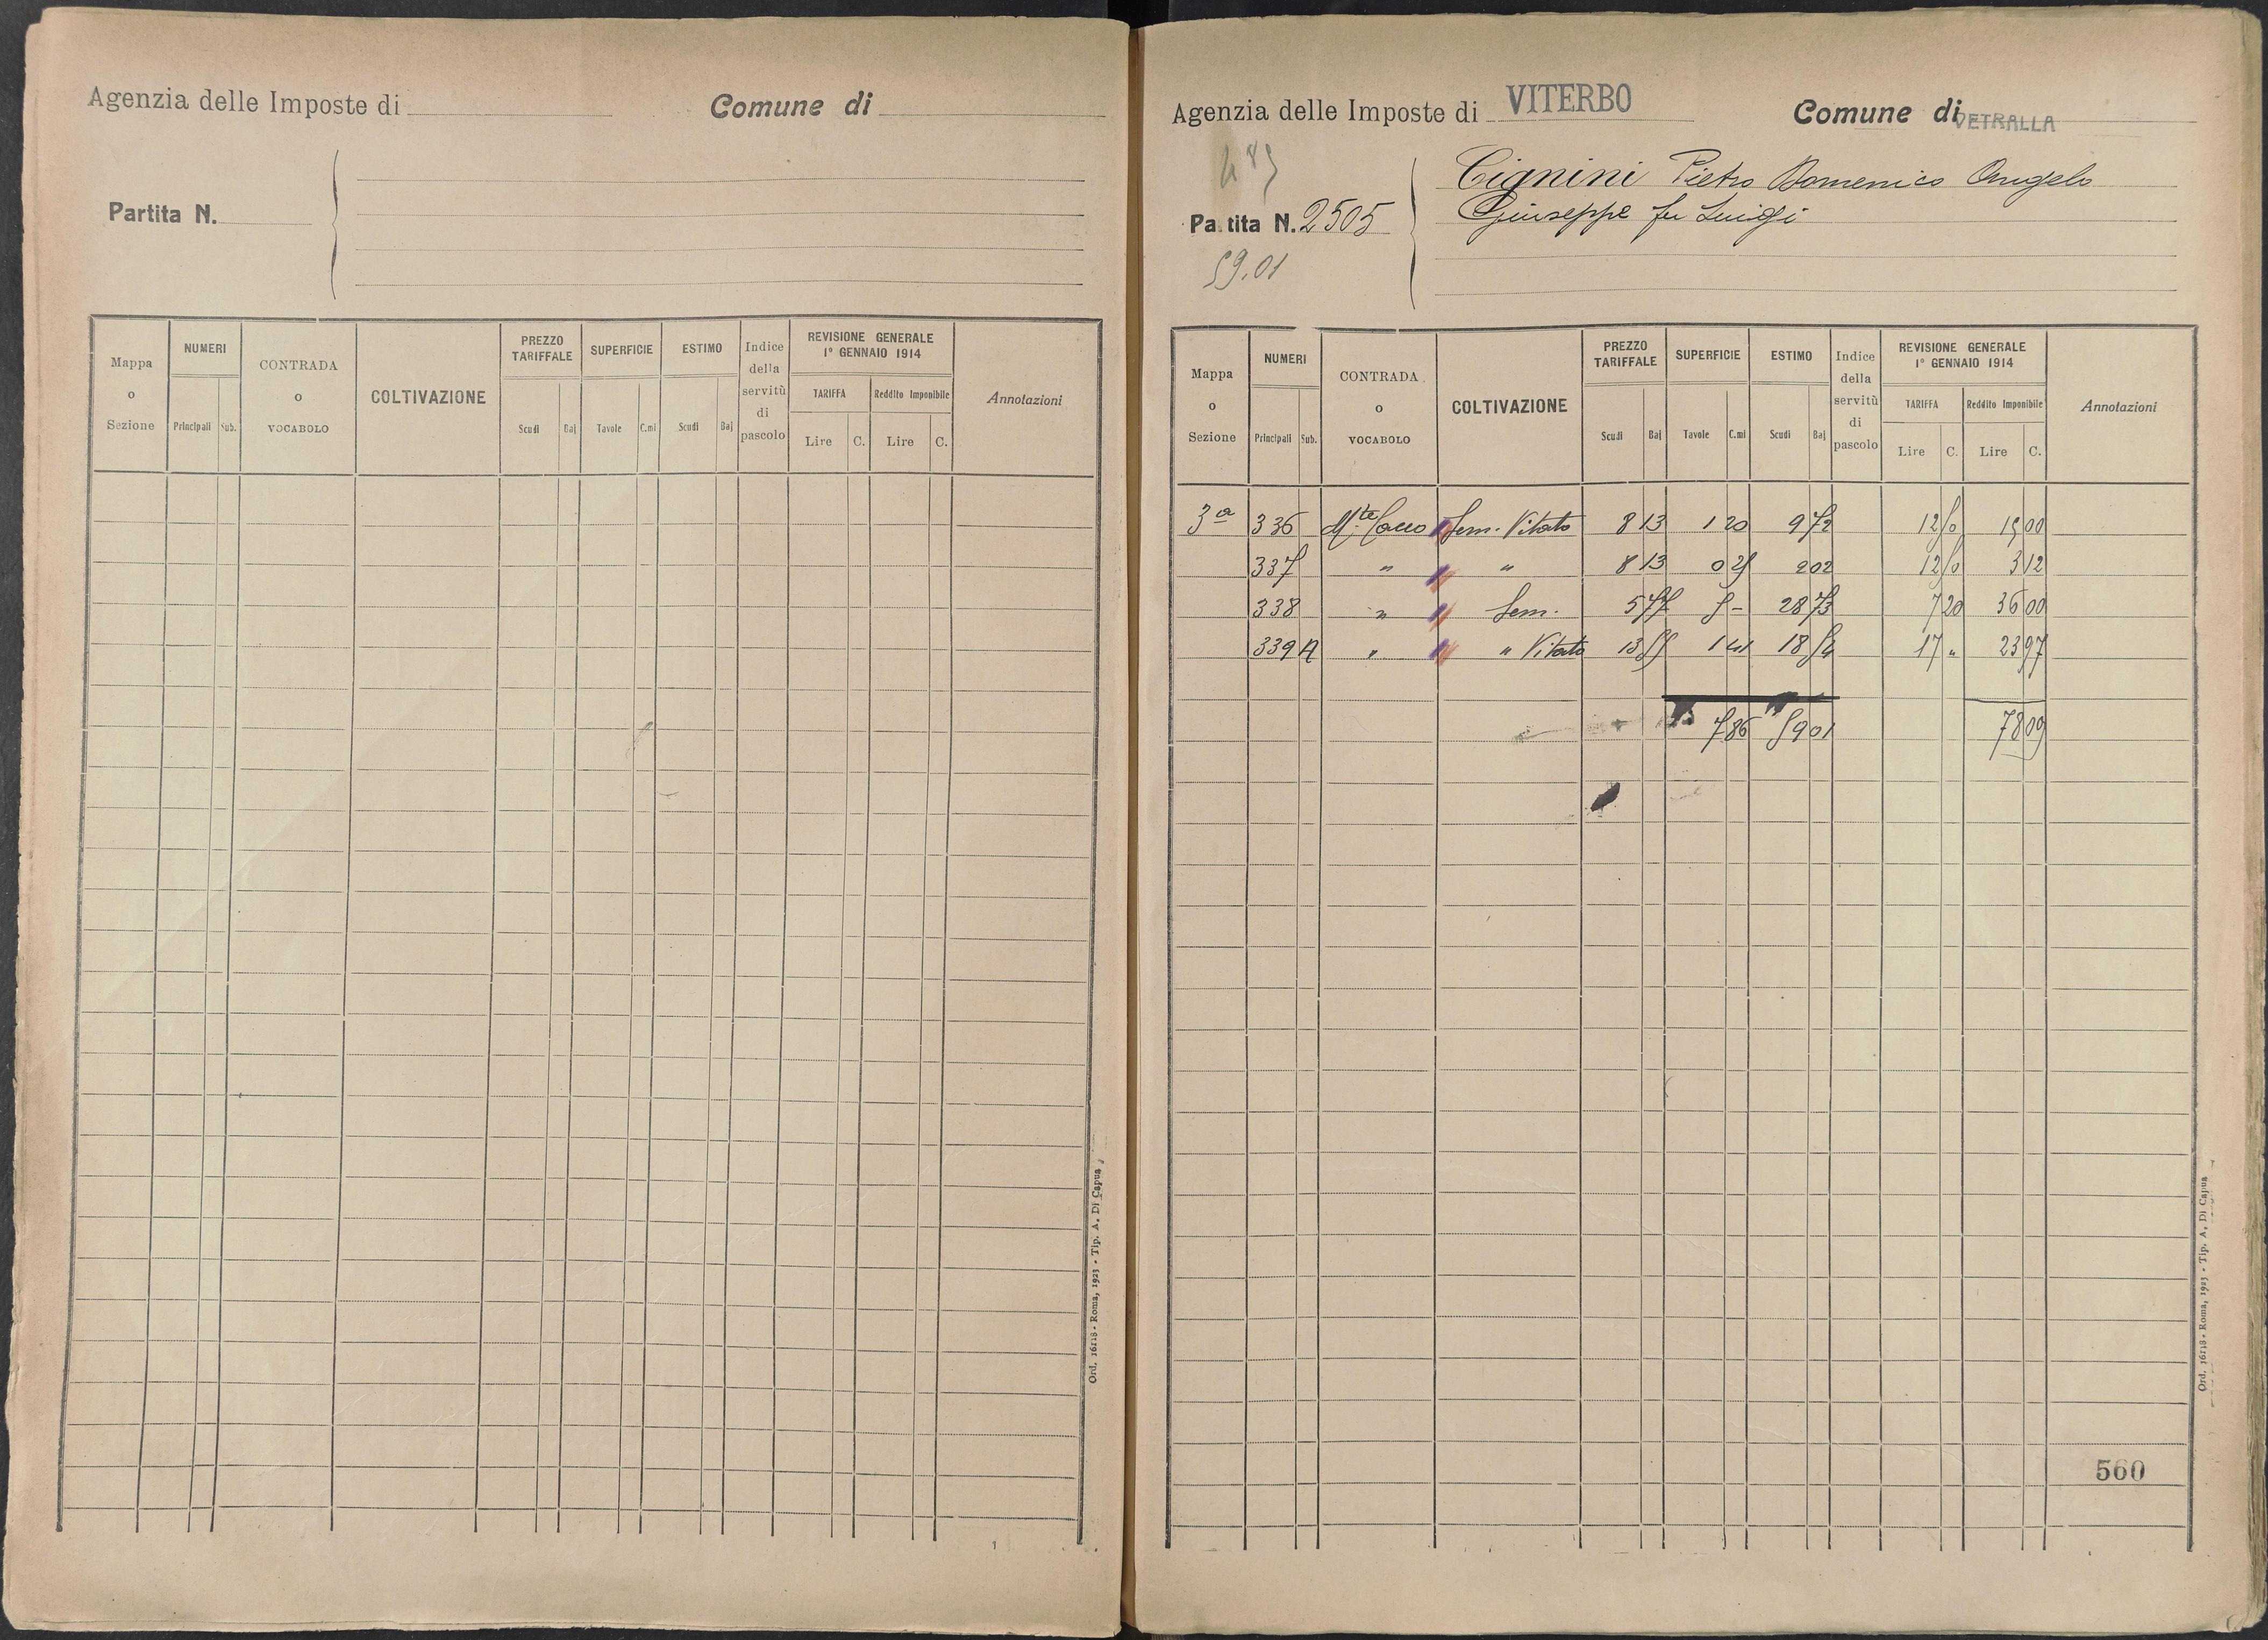 Agenzia delle Imposte di
Comune di
Partita N.
Mappa o Sezione
NUMERI
Principali Sub.
CONTRADA o VOCABOLO
COLTIVAZIONE
PREZZO TARIFFALE
Scudi Baj
SUPERFICIE
Tavole C.mi
ESTIMO
Scudi Baj
Indice della servitù di pascolo
REVISIONE GENERALE
1° GENNAIO 1914
TARIFFA
Lire C.
Reddito Imponibile
Lire C.
Annotazioni
Ord. 16118 - Roma, 1923 - Tip. A. Di Capua
Agenzia delle Imposte di VITERBO
Comune di VETRALLA
485
Partita N. 2505
59.01
Cignini Pietro Domenico Angelo
Giuseppe fu Luigi
Mappa o Sezione
NUMERI
Principali Sub.
CONTRADA o VOCABOLO
COLTIVAZIONE
PREZZO TARIFFALE
Scudi Baj
SUPERFICIE
Tavole C.mi
ESTIMO
Scudi Baj
Indice della servitù di pascolo
REVISIONE GENERALE
1° GENNAIO 1914
TARIFFA
Lire C.
Reddito Imponibile
Lire C.
Annotazioni
3a 336 M.te Cocco Sem. Vitato 8 13 1 20 9 72 12 50 15 00
337 " " 8 13 0 25 2 02 12 50 3 12
338 " Sem. 5 77 5 - 28 73 7 20 36 00
339 A " " Vitato 13 55 1 41 18 54 17 " 23 97
7 86 59 01 78 09
560
Ord. 16118 - Roma, 1923 - Tip. A. Di Capua